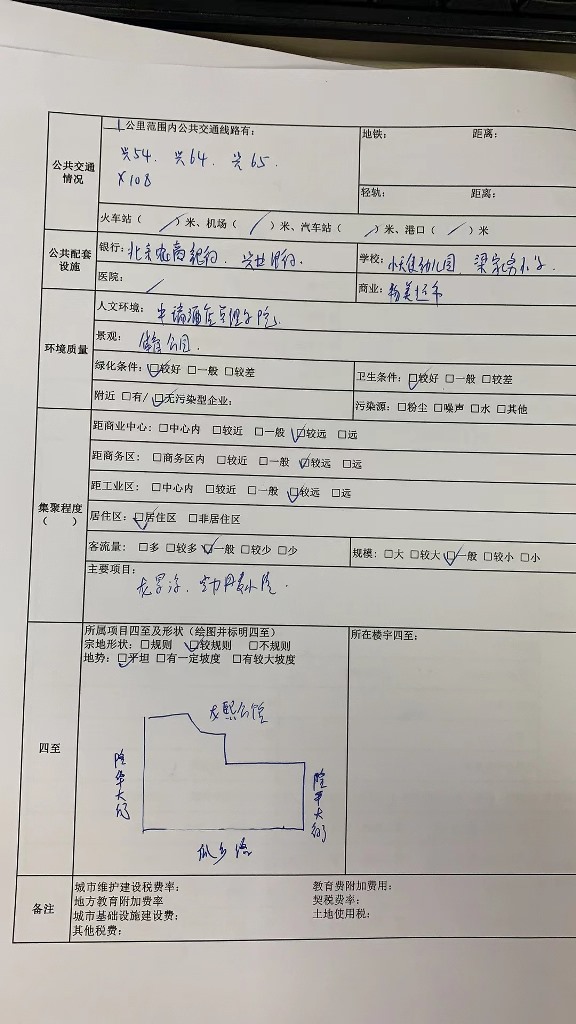 公共交通情况
1公里范围内公共交通线路有：
兴54、兴64、兴65、
X108
地铁： 距离：
轻轨： 距离：
火车站（ ／ ）米、机场（ ／ ）米、汽车站（ ／ ）米、港口（ ／ ）米
公共配套设施
银行：北京农商银行、兴业银行、
学校：幼儿园
医院：／
商业：
环境质量
人文环境：
景观：公园、
绿化条件：☑较好 □一般 □较差
卫生条件：☑较好 □一般 □较差
附近 □有/☑无污染型企业：
污染源：□粉尘 □噪声 □水 □其他
集聚程度（ ）
距商业中心：□中心内 □较近 □一般 ☑较远 □远
距商务区：□商务区内 □较近 □一般 ☑较远 □远
距工业区：□中心内 □较近 □一般 ☑较远 □远
居住区：☑居住区 □非居住区
客流量：□多 □较多 ☑一般 □较少 □少
规模：□大 □较大 ☑一般 □较小 □小
主要项目：
四至
所属项目四至及形状（绘图并标明四至）
宗地形状：□规则 ☑较规则 □不规则
地势：☑平坦 □有一定坡度 □有较大坡度
所在楼宇四至：
龙熙公馆
隆华大街
隆平大街
瓜乡路
备注
城市维护建设税费率：
教育费附加费用：
地方教育附加费率
契税费率：
城市基础设施建设费：
土地使用税：
其他税费：